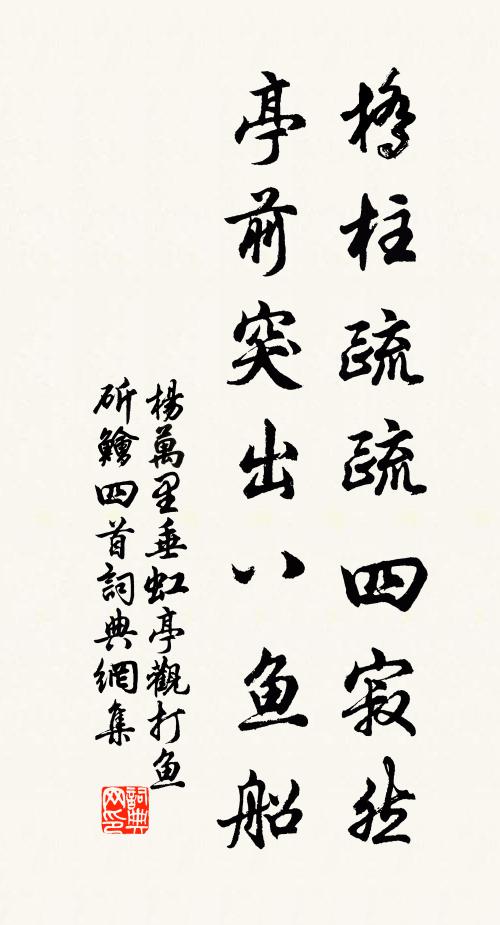 橋柱疏疏四寂然
亭前突出八鱼船
楊萬里垂虹亭觀打鱼
斫鱠四首詞典網集
詞典
网印